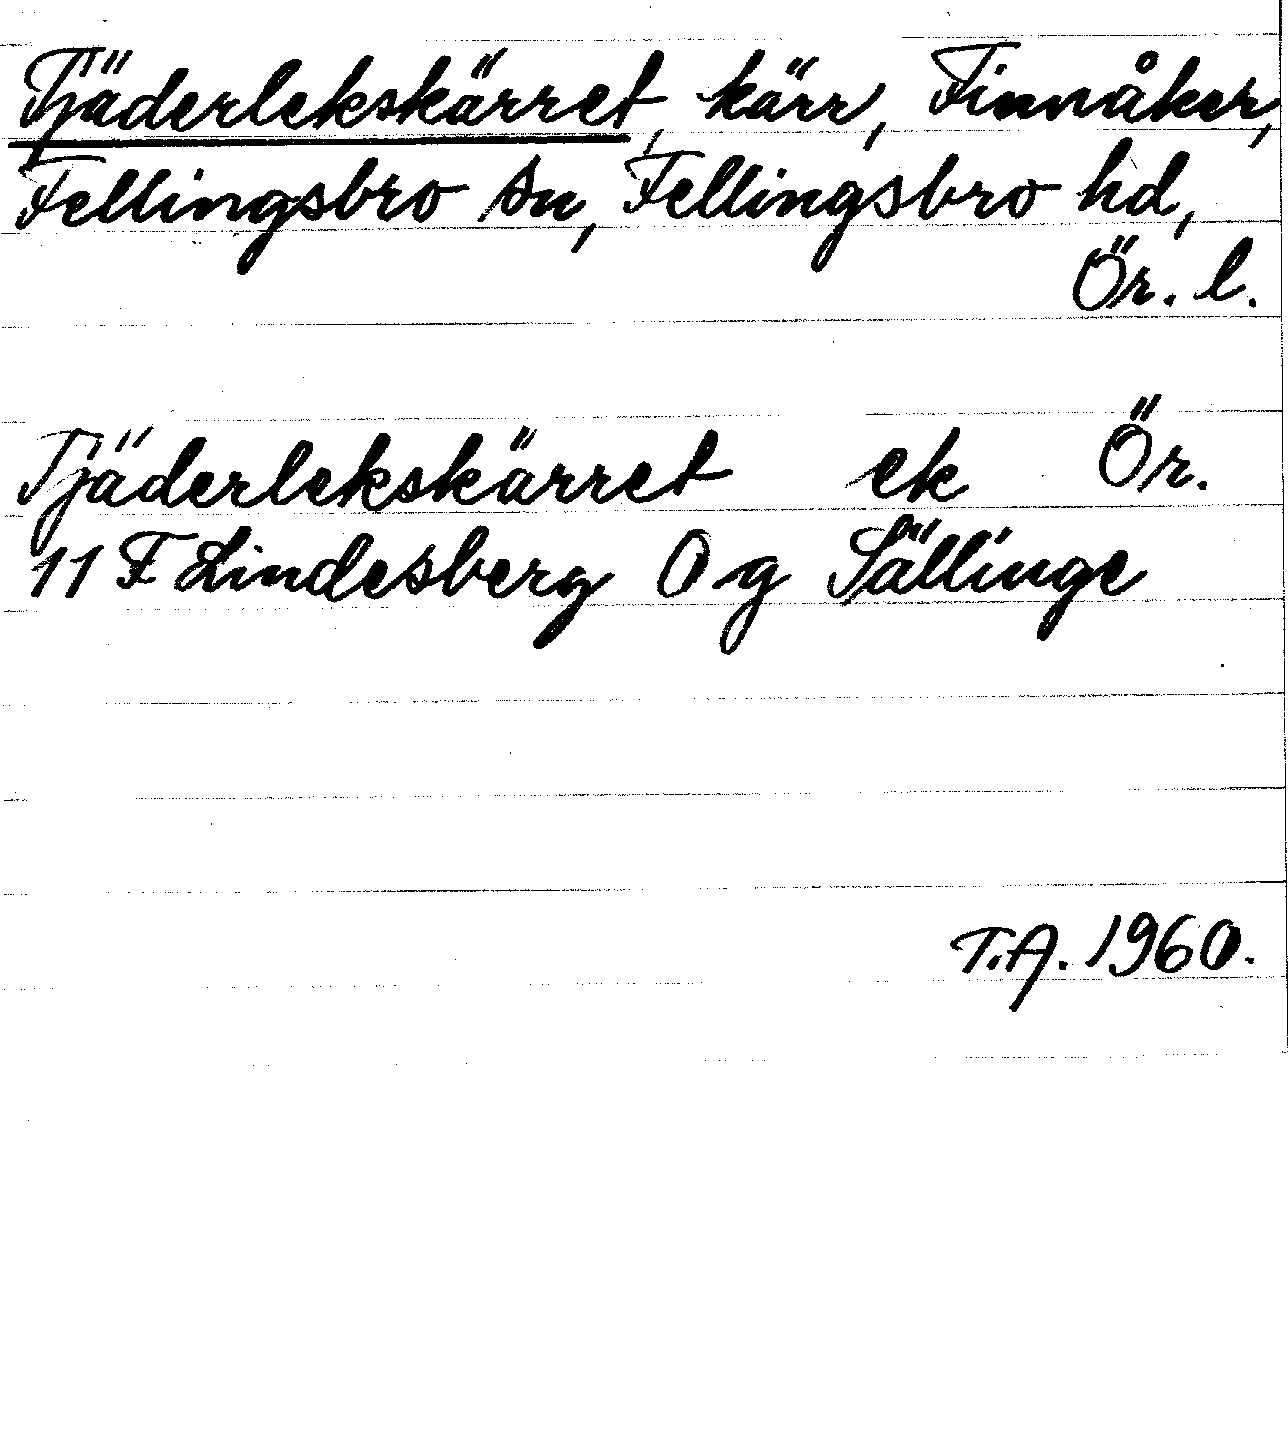 Tjäderlekskärret, kärr, Finnåker,
Fellingsbro sn, Fellingsbro hd,
Ör. l.
Tjäderlekskärret ek Ör.
11 F Lindesberg O g Sällinge
T.A. 1960.